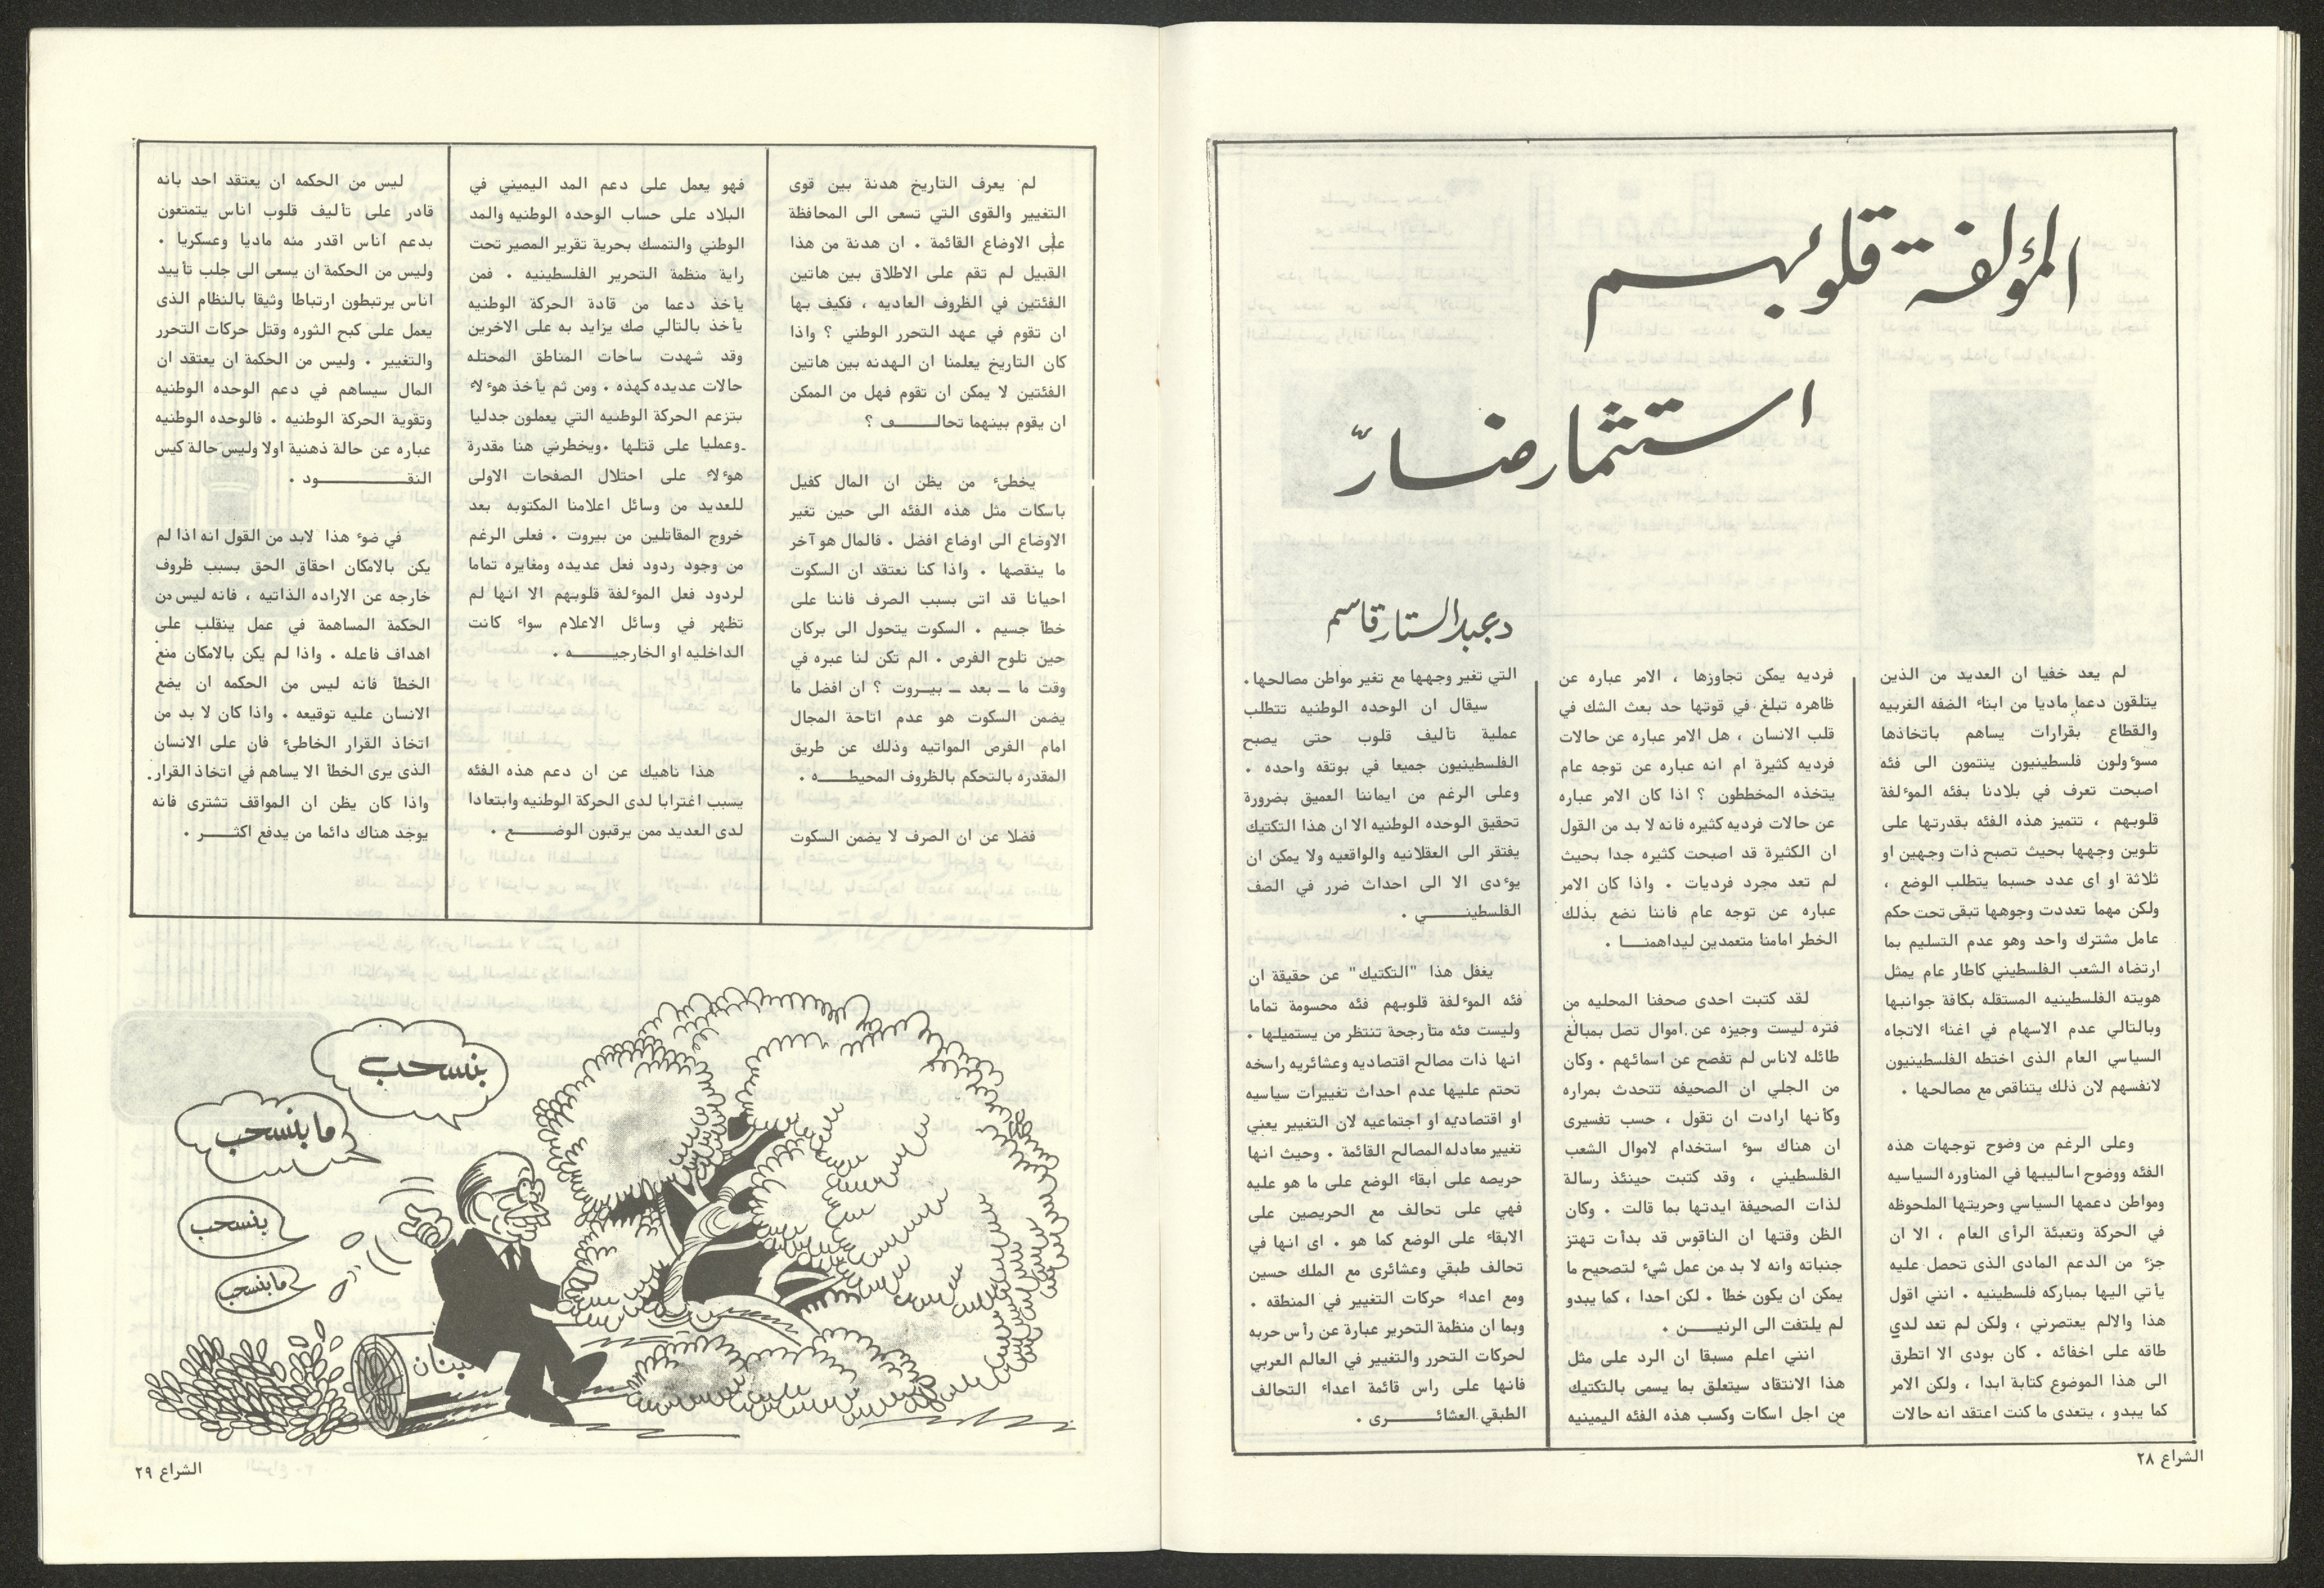 المؤلفة قلوبهم
استثمار ضارّ
د. عبد الستار قاسم
لم يعد خفيا ان العديد من الذين
يتلقون دعما ماديا من ابناء الضفه الغربيه
والقطاع بقرارات يساهم باتخاذها
مسوءولون فلسطينيون ينتمون الى فئه
اصبحت تعرف في بلادنا بفئه الموءلفة
قلوبهم ، تتميز هذه الفئه بقدرتها على
تلوين وجهها بحيث تصبح ذات وجهين او
ثلاثة او اى عدد حسبما يتطلب الوضع ،
ولكن مهما تعددت وجوهها تبقى تحت حكم
عامل مشترك واحد وهو عدم التسليم بما
ارتضاه الشعب الفلسطيني كاطار عام يمثل
هويته الفلسطينيه المستقله بكافة جوانبها
وبالتالي عدم الاسهام في اغناء الاتجاه
السياسي العام الذى اختطه الفلسطينيون
لانفسهم لان ذلك يتناقص مع مصالحها .
وعلى الرغم من وضوح توجهات هذه
الفئه ووضوح اساليبها في المناوره السياسيه
ومواطن دعمها السياسي وحريتها الملحوظه
في الحركة وتعبئة الرأى العام ، الا ان
جزء من الدعم المادى الذى تحصل عليه
يأتي اليها بمباركه فلسطينيه . انني اقول
هذا والالم يعتصرني ، ولكن لم تعد لدي
طاقه على اخفائه . كان بودى الا اتطرق
الى هذا الموضوع كتابة ابدا ، ولكن الامر
كما يبدو ، يتعدى ما كنت اعتقد انه حالات
فرديه يمكن تجاوزها ، الامر عباره عن
ظاهره تبلغ في قوتها حد بعث الشك في
قلب الانسان ، هل الامر عباره عن حالات
فرديه كثيرة ام انه عباره عن توجه عام
يتخذه المخططون ؟ اذا كان الامر عباره
عن حالات فرديه كثيره فانه لا بد من القول
ان الكثيرة قد اصبحت كثيره جدا بحيث
لم تعد مجرد فرديات . واذا كان الامر
عباره عن توجه عام فاننا نضع بذلك
الخطر امامنا متعمدين ليداهمنـا .
لقد كتبت احدى صحفنا المحليه من
فتره ليست وجيزه عن اموال تصل بمبالغ
طائله لاناس لم تفصح عن اسمائهم . وكان
من الجلي ان الصحيفه تتحدث بمراره
وكأنها ارادت ان تقول ، حسب تفسيرى
ان هناك سوء استخدام لاموال الشعب
الفلسطيني ، وقد كتبت حينئذ رسالة
لذات الصحيفة ايدتها بما قالت . وكان
الظن وقتها ان الناقوس قد بدأت تهتز
جنباته وانه لا بد من عمل شيء لتصحيح ما
يمكن ان يكون خطأ . لكن احدا ، كما يبدو
لم يلتفت الى الرنيـــن .
انني اعلم مسبقا ان الرد على مثل
هذا الانتقاد سيتعلق بما يسمى بالتكتيك
من اجل اسكات وكسب هذه الفئه اليمينيه
التي تغير وجهها مع تغير مواطن مصالحها.
سيقال ان الوحده الوطنيه تتطلب
عملية تأليف قلوب حتى يصبح
الفلسطينيون جميعا في بوتقه واحده .
وعلى الرغم من ايماننا العميق بضرورة
تحقيق الوحده الوطنيه الا ان هذا التكتيك
يفتقر الى العقلانيه والواقعيه ولا يمكن ان
يوءدى الا الى احداث ضرر في الصف
الفلسطينـــي .
يغفل هذا "التكتيك" عن حقيقة ان
فئه الموءلفة قلوبهم فئه محسومة تماما
وليست فئه متأرجحة تنتظر من يستميلها .
انها ذات مصالح اقتصاديه وعشائريه راسخه
تحتم عليها عدم احداث تغييرات سياسيه
او اقتصاديه او اجتماعيه لان التغيير يعني
تغيير معادله المصالح القائمة . وحيث انها
حريصه على ابقاء الوضع على ما هو عليه
فهي على تحالف مع الحريصين على
الابقاء على الوضع كما هو . اى انها في
تحالف طبقي وعشائرى مع الملك حسين
ومع اعداء حركات التغيير في المنطقه .
وبما ان منظمة التحرير عبارة عن رأس حربه
لحركات التحرر والتغيير في العالم العربي
فانها على راس قائمة اعداء التحالف
الطبقي العشائــــرى .
الشراع ٢٨
لم يعرف التاريخ هدنة بين قوى
التغيير والقوى التي تسعى الى المحافظة
على الاوضاع القائمة . ان هدنة من هذا
القبيل لم تقم على الاطلاق بين هاتين
الفئتين في الظروف العاديه ، فكيف بها
ان تقوم في عهد التحرر الوطني ؟ واذا
كان التاريخ يعلمنا ان الهدنه بين هاتين
الفئتين لا يمكن ان تقوم فهل من الممكن
ان يقوم بينهما تحالــــف ؟
يخطىء من يظن ان المال كفيل
باسكات مثل هذه الفئه الى حين تغير
الاوضاع الى اوضاع افضل . فالمال هو آخر
ما ينقصها . واذا كنا نعتقد ان السكوت
احيانا قد اتى بسبب الصرف فاننا على
خطأ جسيم . السكوت يتحول الى بركان
حين تلوح الفرص . الم تكن لنا عبره في
وقت ما ــ بعد ــ بيروت ؟ ان افضل ما
يضمن السكوت هو عدم اتاحة المجال
امام الفرص المواتيه وذلك عن طريق
المقدره بالتحكم بالظروف المحيطــــه .
فضلا عن ان الصرف لا يضمن السكوت
فهو يعمل على دعم المد اليميني في
البلاد على حساب الوحده الوطنيه والمد
الوطني والتمسك بحرية تقرير المصير تحت
راية منظمة التحرير الفلسطينيه . فمن
يأخذ دعما من قادة الحركة الوطنيه
يأخذ بالتالي صك يزايد به على الاخرين
وقد شهدت ساحات المناطق المحتله
حالات عديده كهذه . ومن ثم يأخذ هوءلاء
بتزعم الحركة الوطنيه التي يعملون جدليا
وعمليا على قتلها .ويخطرني هنا مقدرة
هوءلاء على احتلال الصفحات الاولى
للعديد من وسائل اعلامنا المكتوبه بعد
خروج المقاتلين من بيروت . فعلى الرغم
من وجود ردود فعل عديده ومغايره تماما
لردود فعل الموءلفة قلوبهم الا انها لم
تظهر في وسائل الاعلام سواء كانت
الداخليه او الخارجيــــه .
هذا ناهيك عن ان دعم هذه الفئه
يسبب اغترابا لدى الحركة الوطنيه وابتعادا
لدى العديد ممن يرقبون الوضـــع .
ليس من الحكمه ان يعتقد احد بانه
قادر على تأليف قلوب اناس يتمتعون
بدعم اناس اقدر منه ماديا وعسكريا .
وليس من الحكمة ان يسعى الى جلب تأييد
اناس يرتبطون ارتباطا وثيقا بالنظام الذى
يعمل على كبح الثوره وقتل حركات التحرر
والتغيير . وليس من الحكمة ان يعتقد ان
المال سيساهم في دعم الوحده الوطنيه
وتقوية الحركة الوطنيه . فالوحده الوطنيه
عباره عن حالة ذهنية اولا وليس حالة كيس
النقـــــــود .
في ضوء هذا لابد من القول انه اذا لم
يكن بالامكان احقاق الحق بسبب ظروف
خارجه عن الاراده الذاتيه ، فانه ليس من
الحكمة المساهمة في عمل ينقلب على
اهداف فاعله . واذا لم يكن بالامكان منع
الخطأ فانه ليس من الحكمه ان يضع
الانسان عليه توقيعه . واذا كان لا بد من
اتخاذ القرار الخاطىء فان على الانسان
الذى يرى الخطأ الا يساهم في اتخاذ القرار.
واذا كان يظن ان المواقف تشترى فانه
يوجد هناك دائما من يدفع اكثـــر .
بنسحب
ما بنسحب
بنسحب
ما بنسحب
لبنان
الشراع ٢٩